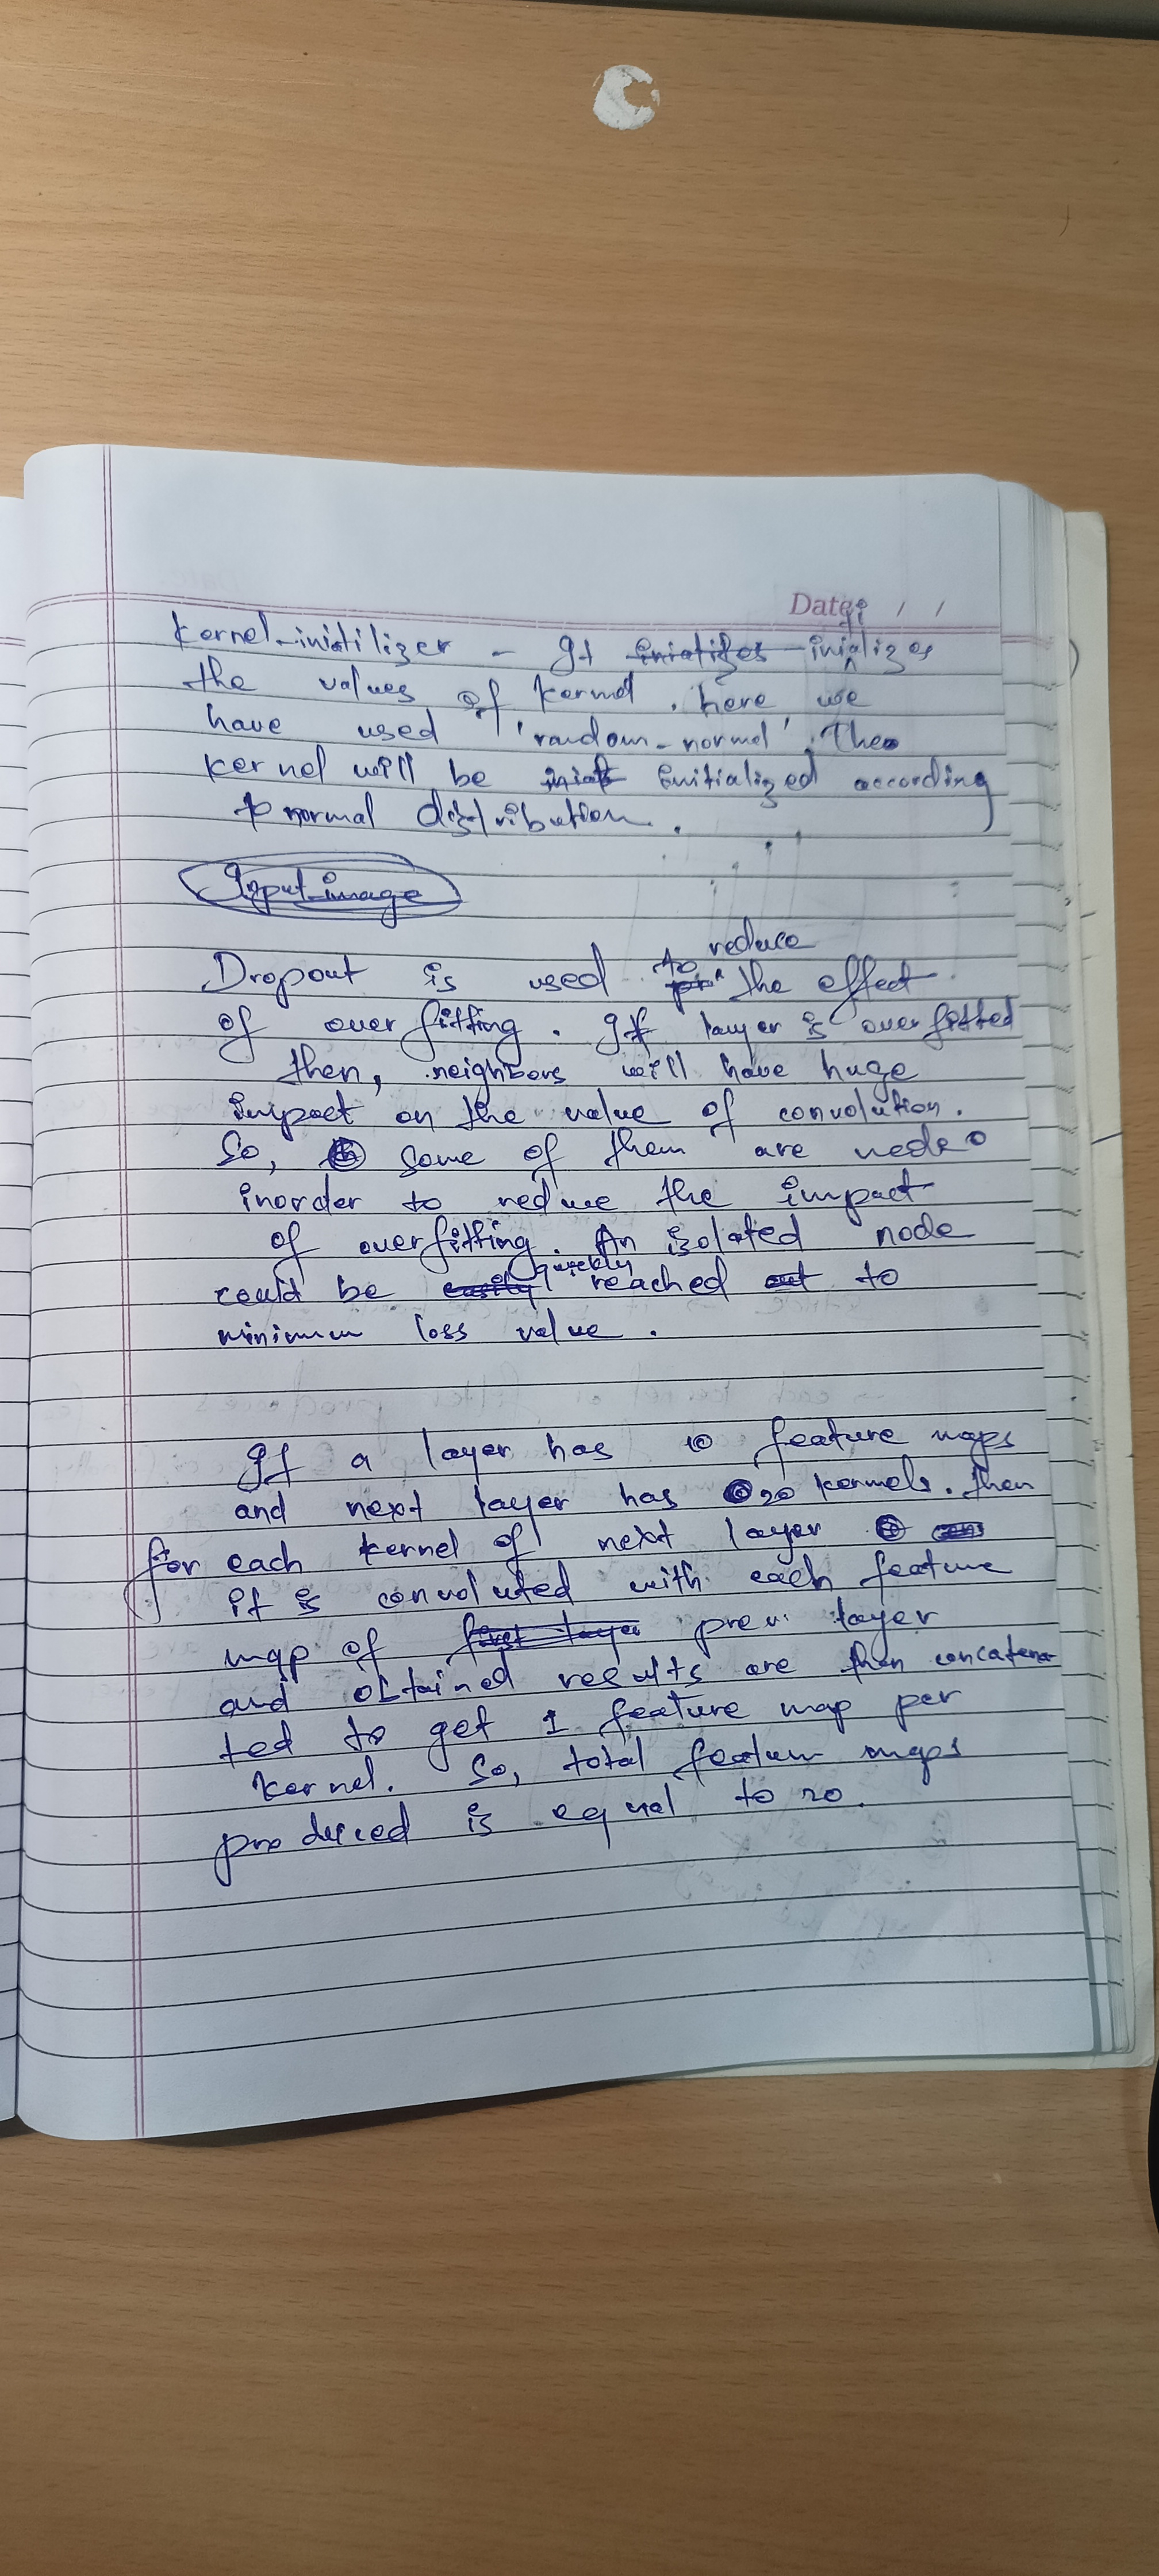 Date: / /
Kernel-inistilizer - It initializes
the values of kernel. here we
have used 'random-normal'. The
kernel will be initialized according
to normal distribution.
Input image
Dropout is used to reduce the effect
of overfitting. If layer is overfitted
then, neighbors will have huge
impact on the value of convolution.
So, some of them are
inorder to reduce the impact
of overfitting. An isolated node
could be quickly reached to
minimum loss value.
If a layer has 10 feature maps
and next layer has 20 kernels. then
for each kernel of next layer
it is convoluted with each feature
map of prev. layer
and obtained results are then concatena-
ted to get 1 feature map per
kernel. So, total feature maps
produced is equal to 20.